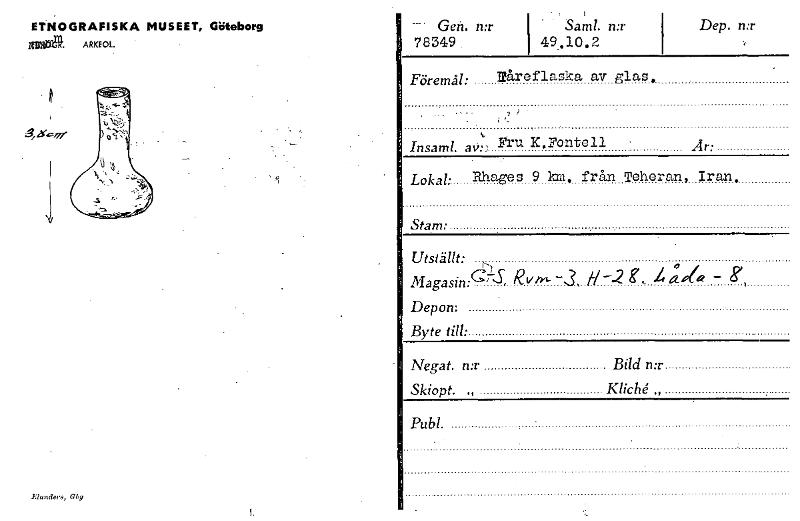 ETNOGRAFISKA MUSEET, Göteborg
ARKEOL.
3,8cm
Elanders, Gbg
Gen. n:r Saml. n:r Dep. n:r
78349 49.10.2
Föremål: Tåreflaska av glas.
Insaml. av: Fru K.Fontell År:
Lokal: Rhages 9 km. från Teheran, Iran.
Stam:
Utställt:
Magasin: G-S. Rum-3. H-28. Låda-8.
Depon:
Byte till:
Negat. n:r Bild n:r
Skiopt. „ Kliché „
Publ.